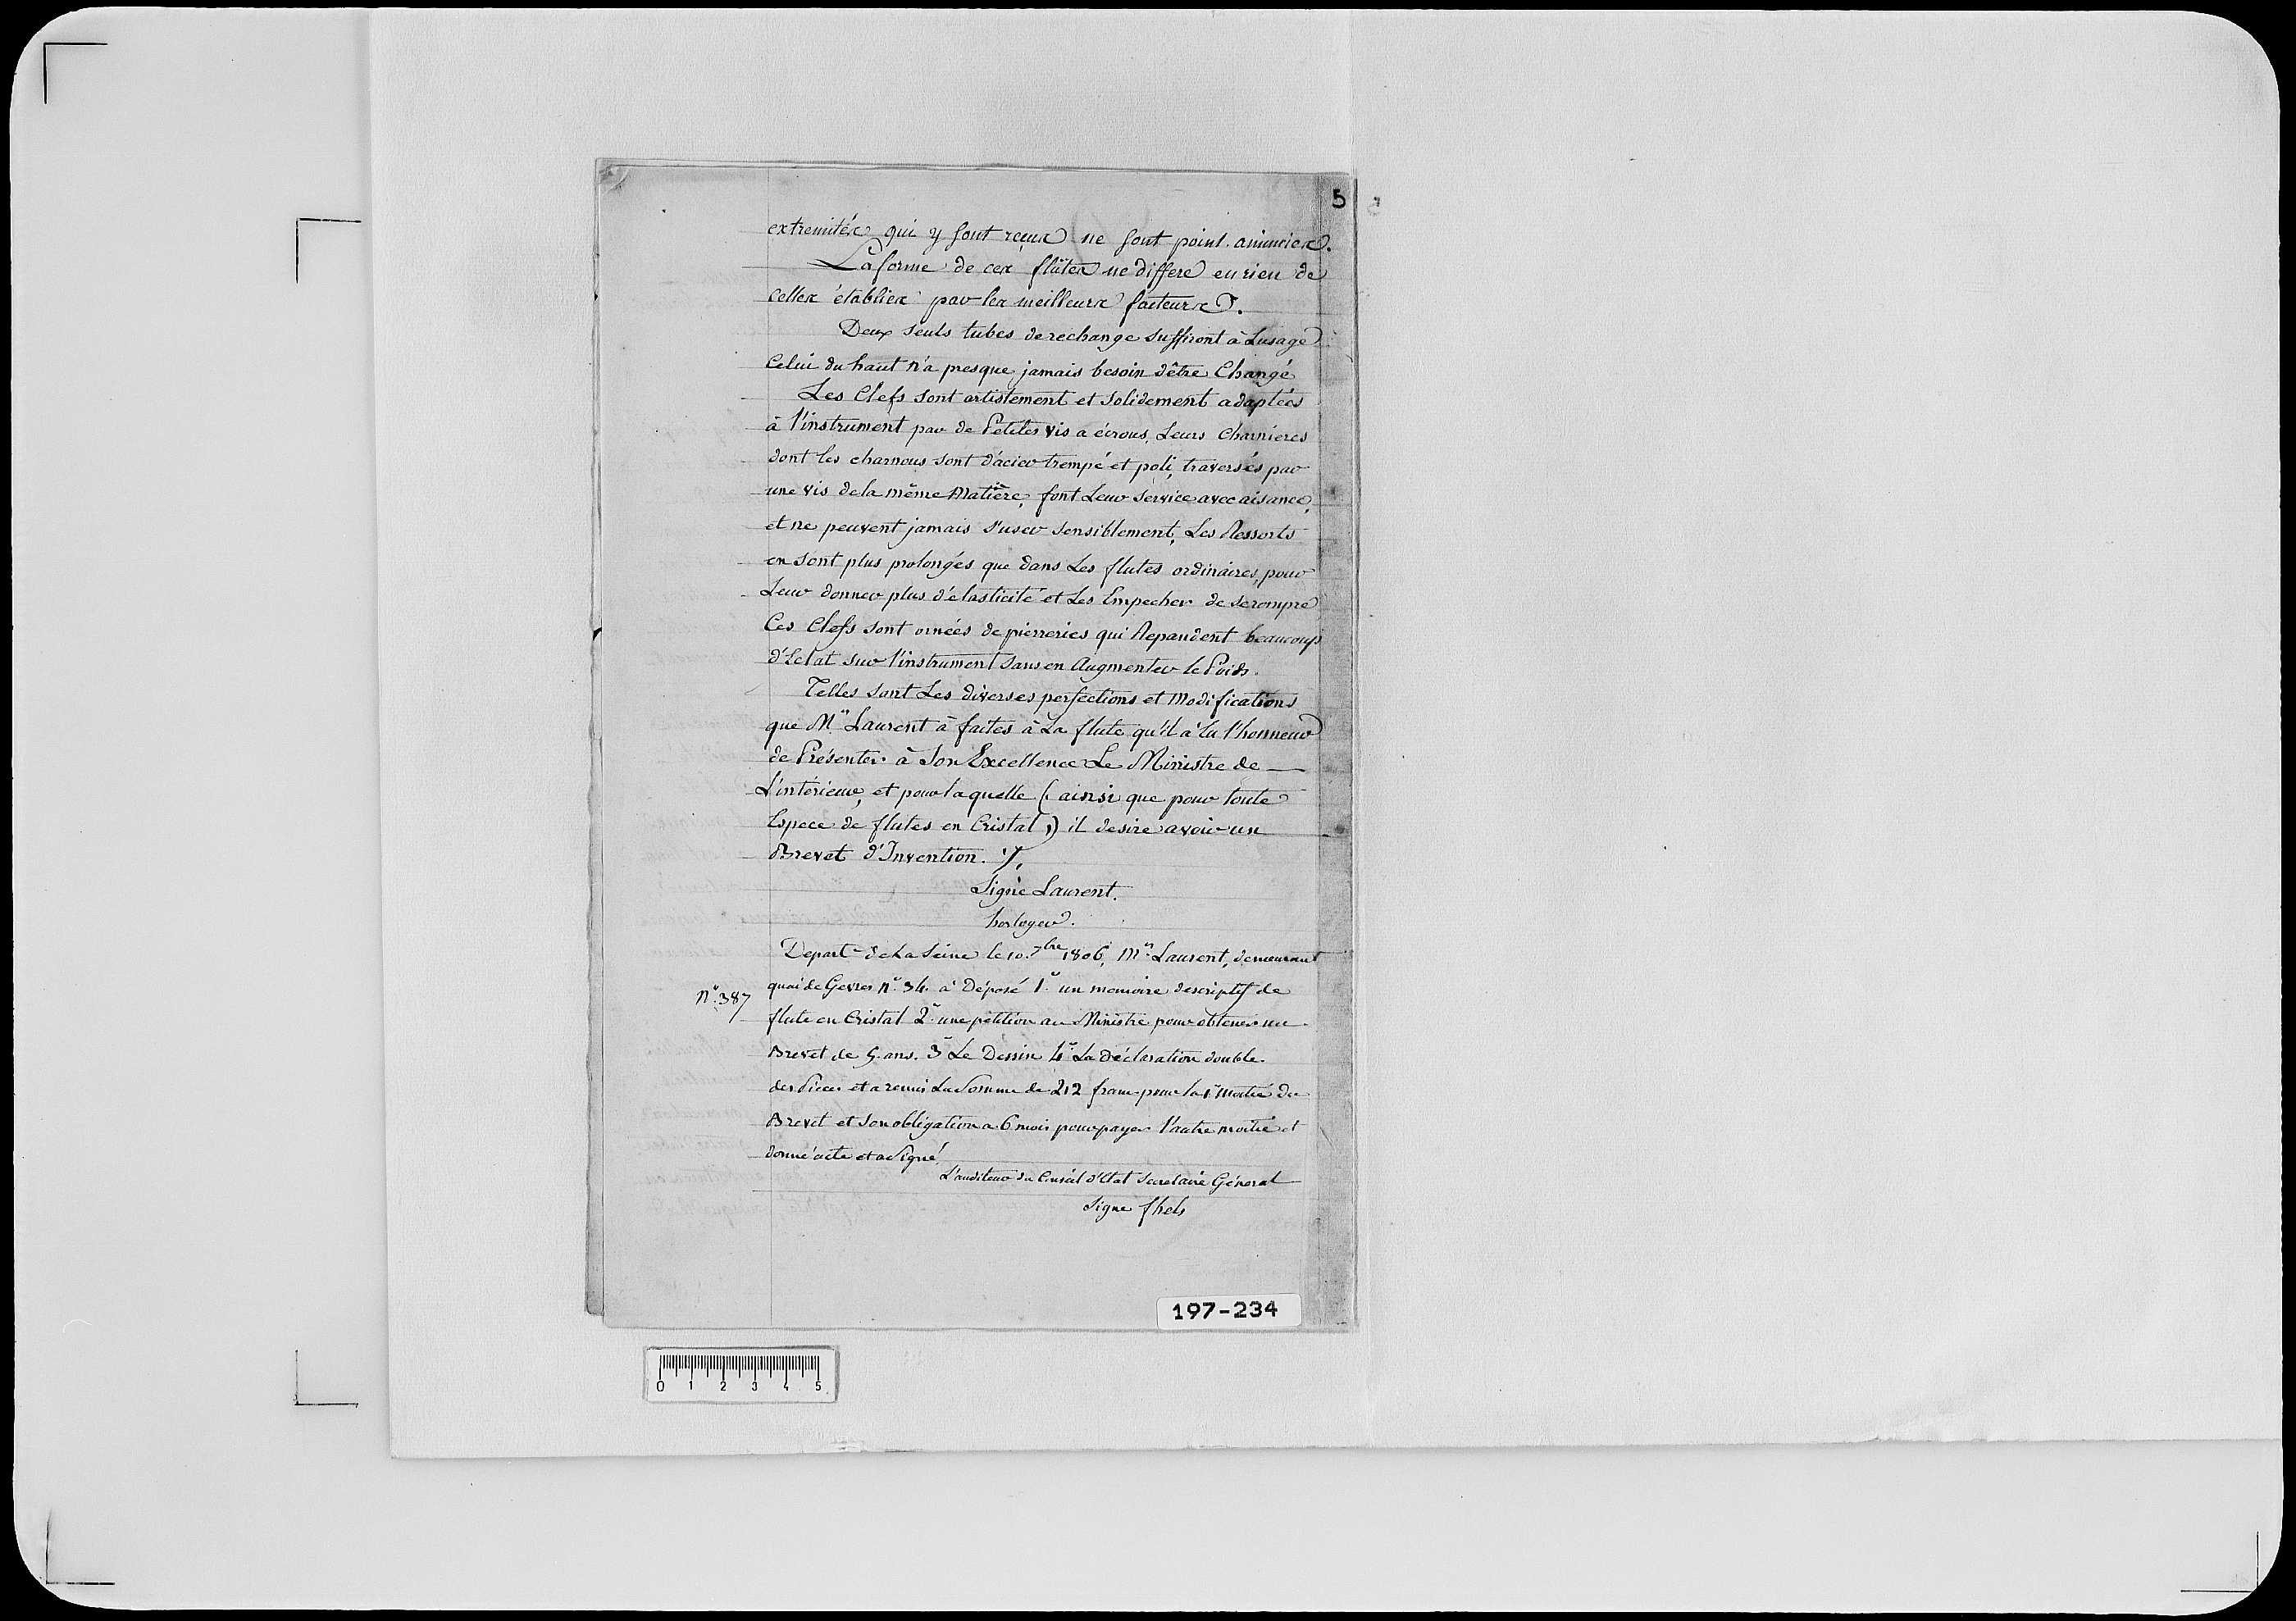 5
extremités qui y sont reçues ne sont point amincies.
La forme de ces flûtes ne differe en rien de
celles établies par les meilleurs facteurs.
Deux seuls tubes de rechange suffiront à Lusage
Celui du haut n'a presque jamais besoin d'être Changé
Les Clefs sont artistement et solidement adaptées
à l'instrument par de Petites vis a écrous, Leurs Charnieres
dont les charnons sont d'acier trempé et poli, traversés par
une vis de la même Matière, font Leur service avec aisance,
et ne peuvent jamais s'user sensiblement, Les Ressorts
en sont plus prolongés que dans Les flutes ordinaires, pour
Leur donner plus d'élasticité et Les Empecher de se rompre
Ces Clefs sont ornées de pierreries qui Repandent beaucoup
d'Eclat sur l'instrument sans en Augmenter le Poids.
Telles sont Les diverses perfections et Modifications
que Mr. Laurent à faites à La flute qu'il à Eu l'honneur
de Présenter à Son Excellence Le Ministre de
L'intérieur, et pour laquelle (ainsi que pour toute
Espece de flutes en Cristal,) il desire avoir un
Brevet d'Invention. ./.
Signé Laurent.
horloger.
Depart. de La Seine le 10. 7bre 1806, Mr. Laurent, demeurant
quai de Gevres no. 34. à Déposé 1o. un memoire descriptif de
No. 387
flute en Cristal 2o. une petition au Ministre pour obtenir un
Brevet de 5. ans. 3o Le Dessin 4o. La Déclaration double.
des Pieces et a remis La Somme de 212 franc pour la 1re Moitié du
Brevet et son obligation a 6 mois pour payer l'autre moitié et
donné acte et a Signé
L'auditeur du Conseil d'Etat Secretaire Géneral
Signé
197-234
0 1 2 3 4 5